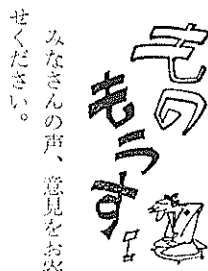 もの
もうす!
みなさんの声、意見をお寄
せください。